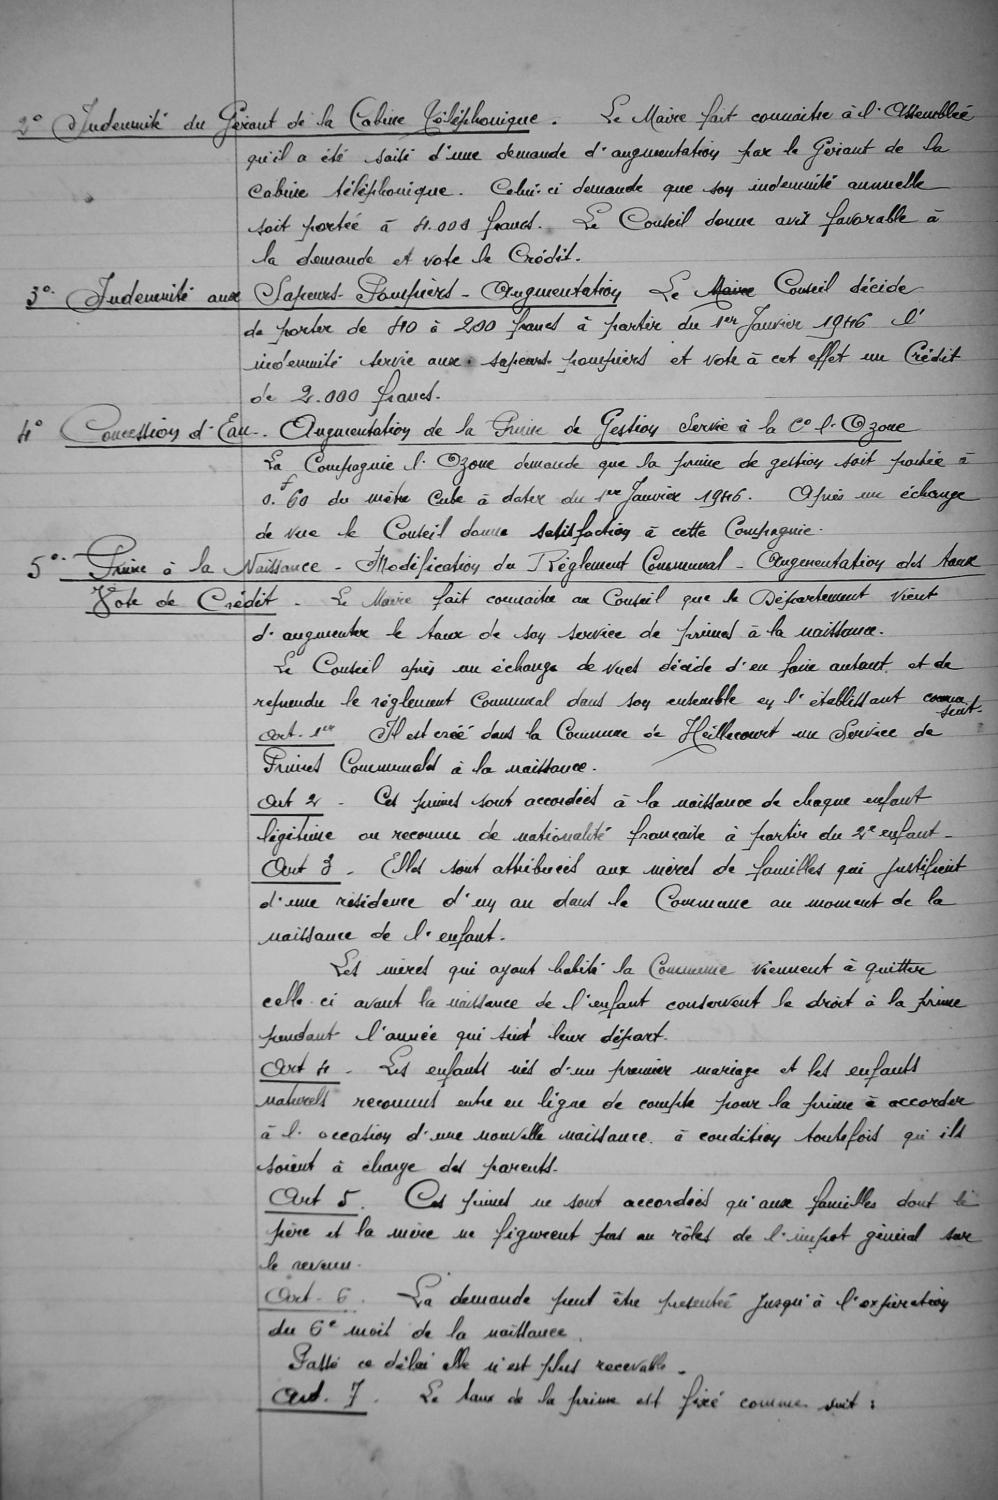 2° Indemnité du Gérant de la Cabine Téléphonique. Le Maire fait connaitre à l'Assemblée
qu'il a été saisi d'une demande d'augmentation par le Gérant de la
Cabine téléphonique. Celui-ci demande que son indemnité annuelle
soit portée à 4.000 francs. Le Conseil donne avis favorable à
la demande et vote le Crédit.
3° Indemnité aux Sapeurs-Pompiers - Augmentation Le Maire Conseil décide
de porter de 40 à 200 francs à partir du 1er Janvier 1946 l'
indemnité servie aux sapeurs pompiers et vote à cet effet un Crédit
de 2.000 francs.
4° Concession d'Eau - Augmentation de la Prime de Gestion Servie à la Cie l'Ozone
La Compagnie l'Ozone demande que la prime de gestion soit portée à
0.f60 du mètre Cube à dater du 1er Janvier 1946. Après un échange
de vue le Conseil donne satisfaction à cette Compagnie.
5° Prime à la Naissance - Modification du Règlement Communal - Augmentation des taux
Vote de Crédit - Le Maire fait connaitre au Conseil que le Département vient
d'augmenter le taux de son service de primes à la naissance.
Le Conseil après un échange de vues décide d'en faire autant et de
refondre le règlement Communal dans son ensemble en l'établissant comme
suit.
Art. 1er Il est créé dans la Commune de Heillecourt un Service de
Primes Communales à la naissance.
Art 2 - Ces primes sont accordées à la naissance de chaque enfant
légitime ou reconnu de nationalité française à partir du 2e enfant -
Art 3 - Elles sont attribuées aux mères de familles qui justifient
d'une résidence d'un an dans la Commune au moment de la
naissance de l'enfant.
Les mères qui ayant habité la Commune viennent à quitter
celle-ci avant la naissance de l'enfant conservent le droit à la prime
pendant l'année qui suit leur départ.
Art 4 - Les enfants nés d'un premier mariage et les enfants
naturels reconnus entre en ligne de compte pour la prime à accorder
à l'occasion d'une nouvelle naissance. à condition toutefois qu'ils
soient à charge des parents.
Art 5. Ces primes ne sont accordées qu'aux familles dont le
père et la mère ne figurent pas au rôles de l'impot général sur
le revenu.
Art - 6. La demande peut être présentée jusqu'à l'expiration
du 6e mois de la naissance.
Passé ce délai elle n'est plus recevable.
Art. 7. Le taux de la prime est fixé comme suit :